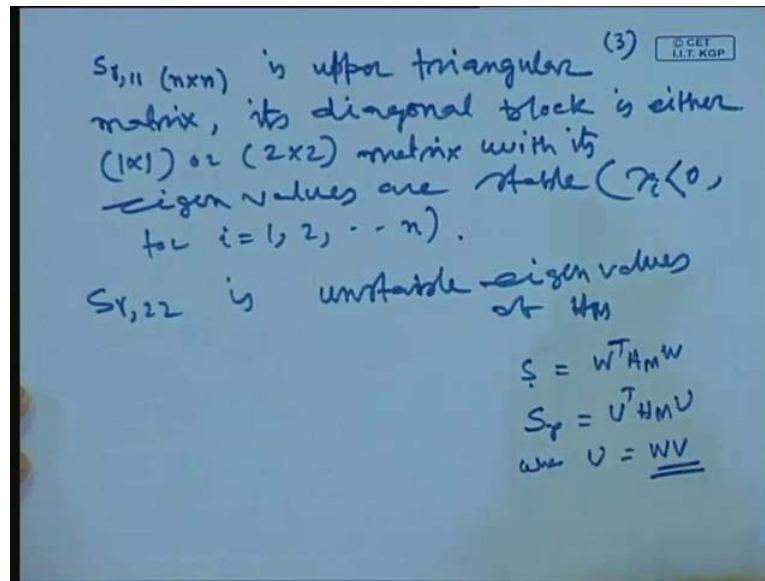 (3) © CET
I.I.T. KGP
Sγ,11 (n×n) is upper triangular
matrix, its diagonal block is either
(1×1) or (2×2) matrix with its
eigen values are stable (λi<0,
for i=1, 2, -- n).
Sγ,22 is unstable eigen values
of HM
S = W^T H_M W
Sγ = U^T H_M U
where U = WV